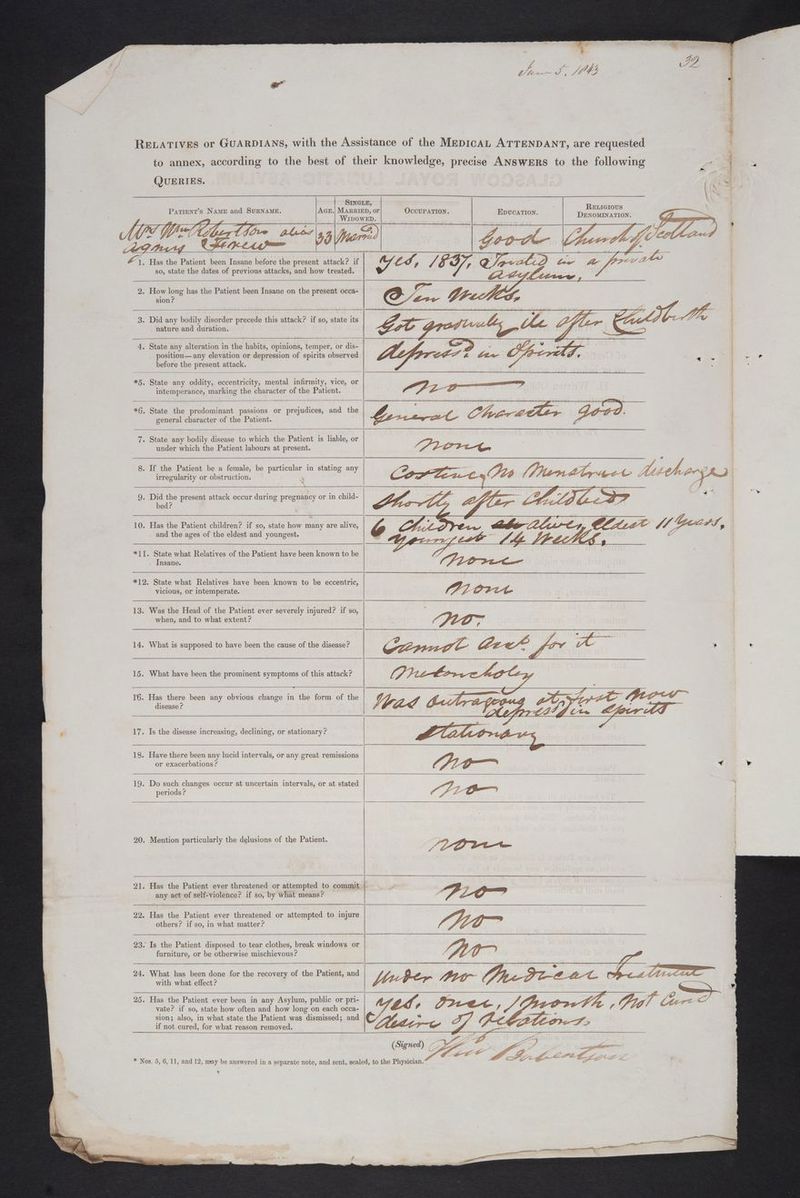 June 5. 1843
32
RELATIVES or GUARDIANS, with the Assistance of the MEDICAL ATTENDANT, are requested
to annex, according to the best of their knowledge, precise ANSWERS to the following
QUERIES.
PATIENT'S NAME and SURNAME.
AGE.
SINGLE,
MARRIED, or
WIDOWED.
OCCUPATION.
EDUCATION.
RELIGIOUS
DENOMINATION.
Mrs Wm Robertson alias
Agnes
33
Married
Good
Church of Scotland
1. Has the Patient been Insane before the present attack? if
so, state the dates of previous attacks, and how treated.
Yes, 1837, Treated in a private
asylum,
2. How long has the Patient been Insane on the present occa-
sion?
Ten Weeks.
3. Did any bodily disorder precede this attack? if so, state its
nature and duration.
Got gradually ill after Childbirth
4. State any alteration in the habits, opinions, temper, or dis-
position—any elevation or depression of spirits observed
before the present attack.
depressd in Spirits.
*5. State any oddity, eccentricity, mental infirmity, vice, or
intemperance, marking the character of the Patient.
no
*6. State the predominant passions or prejudices, and the
general character of the Patient.
General Character good.
7. State any bodily disease to which the Patient is liable, or
under which the Patient labours at present.
none
8. If the Patient be a female, be particular in stating any
irregularity or obstruction.
Costive, No Menstrual discharge
9. Did the present attack occur during pregnancy or in child-
bed?
Shortly after Childbed
10. Has the Patient children? if so, state how many are alive,
and the ages of the eldest and youngest.
6 Children alive, Eldest 11 Years,
youngest 14 Weeks.
*11. State what Relatives of the Patient have been known to be
Insane.
none
*12. State what Relatives have been known to be eccentric,
vicious, or intemperate.
none
13. Was the Head of the Patient ever severely injured? if so,
when, and to what extent?
no.
14. What is supposed to have been the cause of the disease?
Cannot acct. for it
15. What have been the prominent symptoms of this attack?
Meloncholey
16. Has there been any obvious change in the form of the
disease?
Was outrageous at first now
depressd in spirits
17. Is the disease increasing, declining, or stationary?
Stationary
18. Have there been any lucid intervals, or any great remissions
or exacerbations?
No
19. Do such changes occur at uncertain intervals, or at stated
periods?
no
20. Mention particularly the delusions of the Patient.
none
21. Has the Patient ever threatened or attempted to commit
any act of self-violence? if so, by what means?
no
22. Has the Patient ever threatened or attempted to injure
others? if so, in what matter?
No
23. Is the Patient disposed to tear clothes, break windows or
furniture, or be otherwise mischievous?
No
24. What has been done for the recovery of the Patient, and
with what effect?
Under no Medical Treatment
25. Has the Patient ever been in any Asylum, public or pri-
vate? if so, state how often and how long on each occa-
sion; also, in what state the Patient was dismissed; and
if not cured, for what reason removed.
Yes. once, 1 month, Not Cured
desire of relations.
(Signed) Wm Robertson
* Nos. 5, 6, 11, and 12, may be answered in a separate note, and sent, sealed, to the Physician.